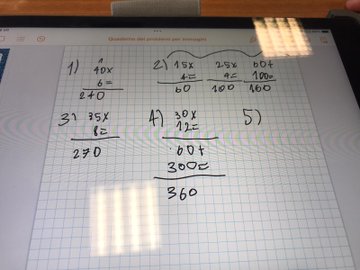 Quaderno dei problemi per immagini
1) 40x
6=
240
2) 15x 25x 60+
4= 4= 100=
60 100 160
3) 35x
8=
270
4) 30x
12=
60+
300=
360
5)